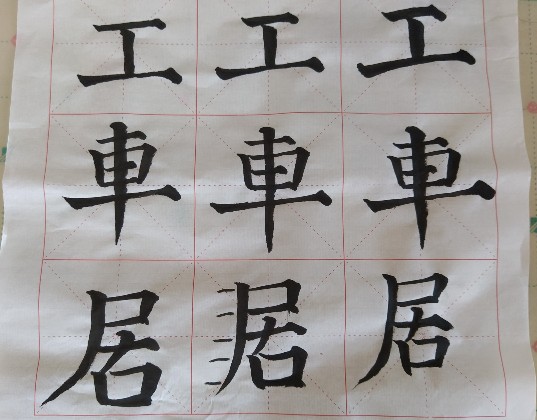 工 工 工
車 車 車
居 居 居